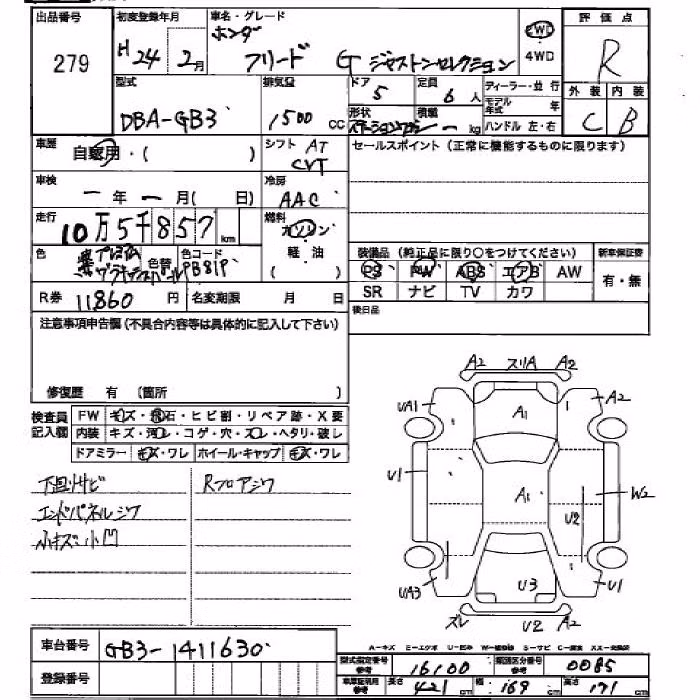 出品番号 初度登録年月 車名・グレード 評価点
279 H24年 2月 ホンダ フリード G ジャストセレクション 2WD 4WD R
型式 排気量 ドア 定員 ディーラー・並行 外装 内装
DBA-GB3 1500 CC 5 6人 モデル年式 年 C B
形状 ステーションワゴン 積載 ー kg ハンドル 左・右
車歴 自家用・( ) シフト AT CVT セールスポイント (正常に機能するものに限ります)
車検 ー年ー月( 日) 冷房 AAC
走行 10万5千857 km 燃料 ガソリン
軽・油 ( )
色 色替 色コード PB81P 装備品 (純正品に限り〇をつけてください) 新車保証書
PS PW ABS エアB AW 有・無
R券 11860 円 名変期限 月 日 SR ナビ TV カワ
注意事項申告欄 (不具合内容等は具体的に記入して下さい) 後日品
修復歴 有 (箇所 )
検査員記入欄 FW キズ・飛石・ヒビ割・リペア跡・X要
内装 キズ・汚れ・コゲ・穴・スレ・ヘタリ・破レ
ドアミラー キズ・ワレ ホイール・キャップ キズ・ワレ
下回りサビ Rフロアシワ
エンドパネルシワ
小キズ小凹
A2 スリA A2
UA1 A1 A2
U1 A1 W2
U2
UA3 U3 U1
ズレ U2 A2
車台番号 GB3-1411630
A-キズ E-エクボ U-凹み W-補修跡 S-サビ C-腐食 XX-交換済
型式指定番号 参考 16100 類別区分番号 参考 0085
登録番号 車車証明用 参考 長さ 421 cm 幅 169 cm 高さ 171 cm